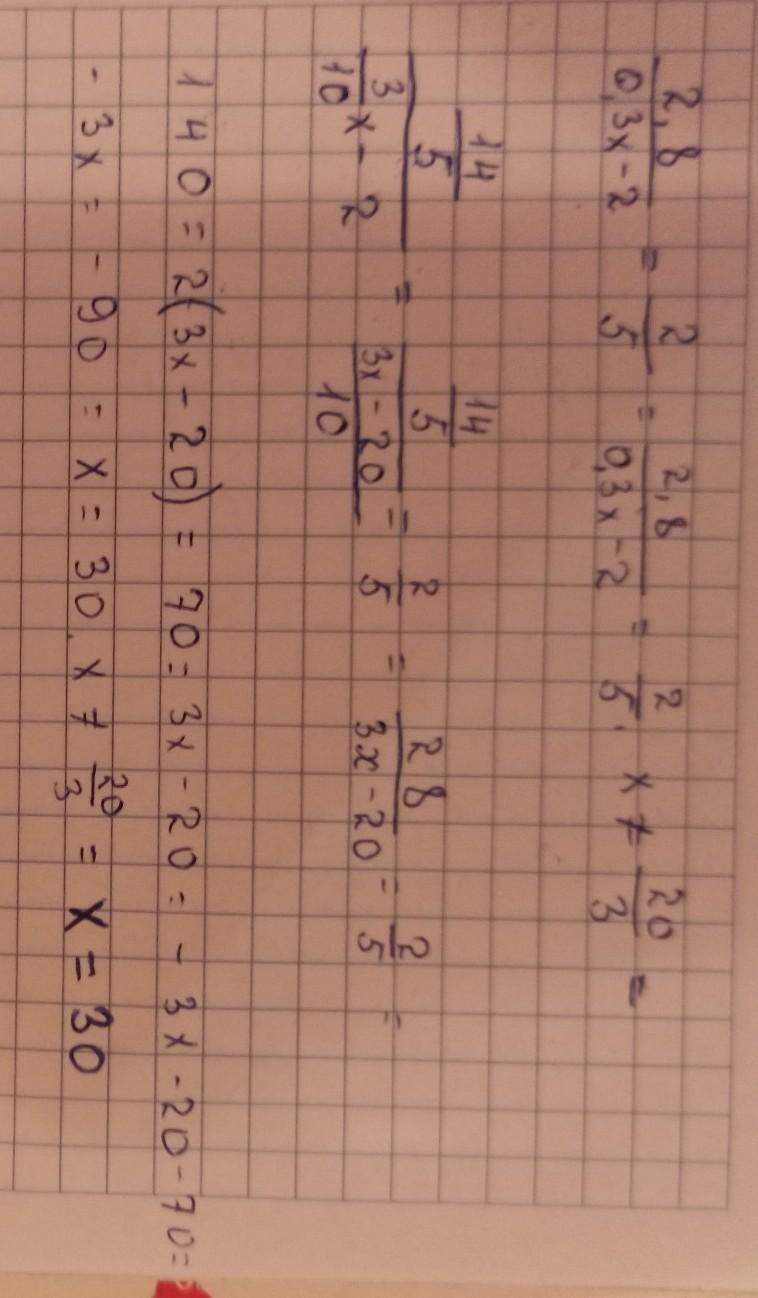 2,8/(0,3x-2) = 2/5 = 2,8/(0,3x-2) = 2/5. x ≠ 20/3 =
(14/5)/(3/10 x - 2) = (14/5)/((3x-20)/10) = 2/5 = 28/(3x-20) = 2/5 =
140 = 2(3x-20) = 70 = 3x-20 = -3x-20-70=
-3x = -90 = x = 30. x ≠ 20/3 = x = 30